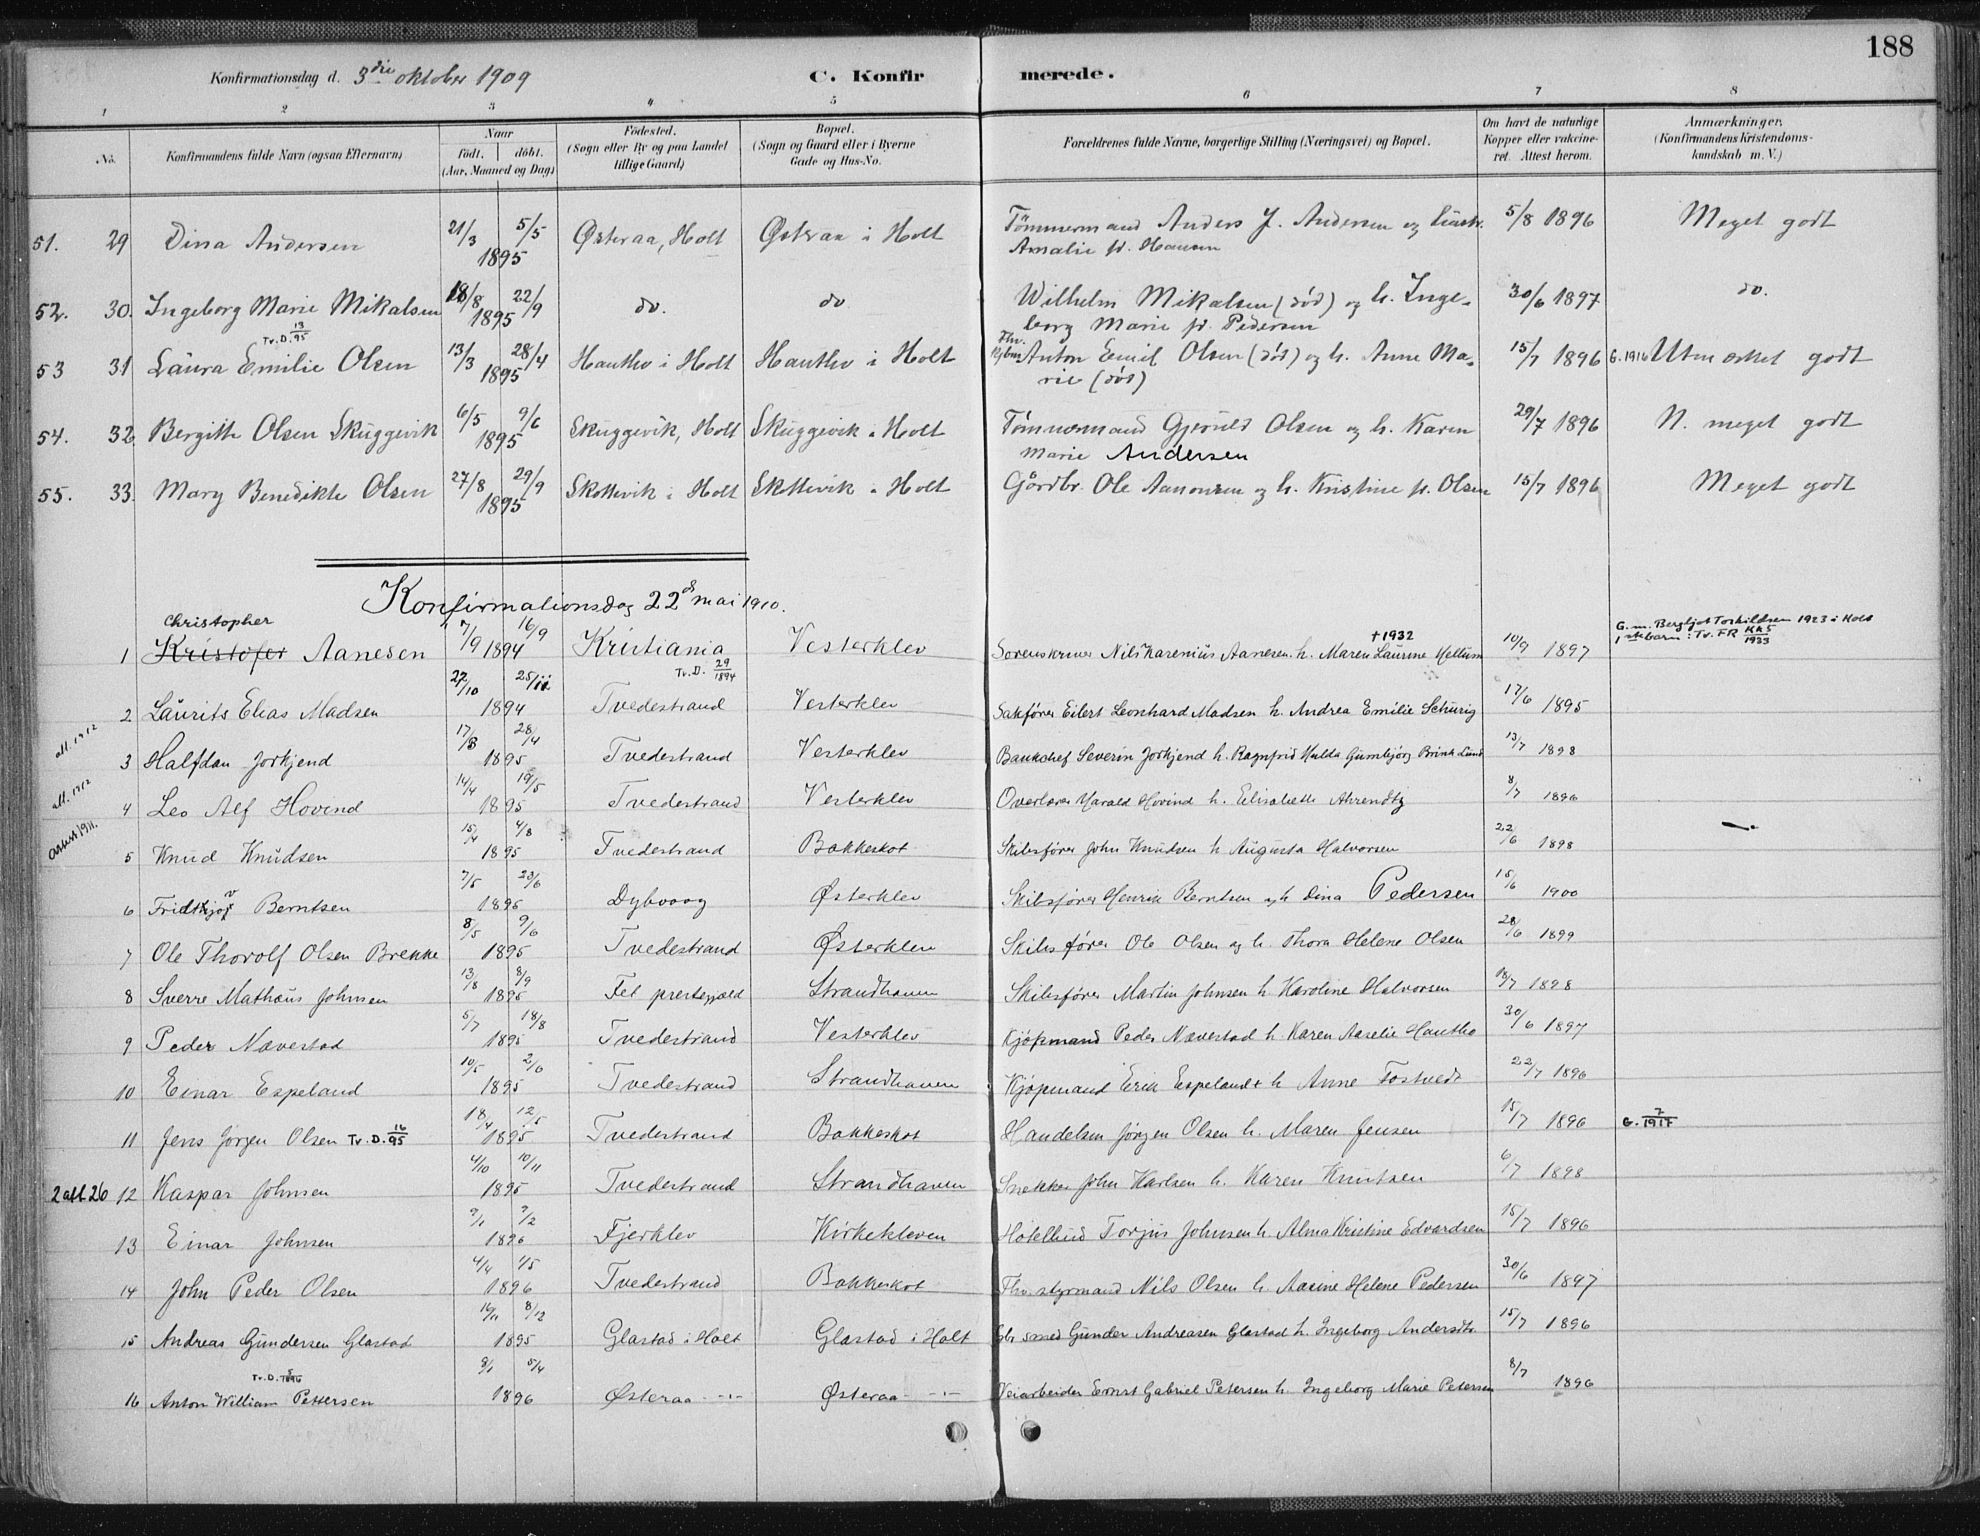 188
Konfirmationsdag d. 3die oktober 1909 C. Konfirmerede.
1 2 3 4 5 6 7 8
No. Konfirmandens fulde Navn (ogsaa Efternavn) Naar födt. döbt. (Aar, Maaned og Dag) Födested. (Sogn eller By og paa Landet tillige Gaard) Bopæl. (Sogn og Gaard eller i Byerne Gade og Hus-No. Forældrenes fulde Navne, borgerlige Stilling (Næringsvei) og Bopæl. Om havt de naturlige Kopper eller vakcineret. Attest herom. Anmærkninger. (Konfirmandens Kristendomskundskab m. V.)
51. 29 Dina Andersen 21/3 5/5 1895 Østeraa, Holt Østeraa i Holt Tömmermand Anders J. Andersen og hustr. Amalie f. Hansen 5/8 1896 Meget godt
52. 30. Ingeborg Marie Mikalsen 18/8 22/9 1895 do. do Wilhelm Mikalsen (död) og h. Ingeborg Marie f. Pedersen 30/6 1897 do.
53 31 Laura Emilie Olsen Tv.D. 13/95 13/3 28/4 1895 Hantho i Holt Hantho i Holt Anton Emil Olsen (död) og h. Anne Marie (död) 15/7 1896 G. 1916 Utmerket godt
54. 32 Bergith Olsen Skuggevik 6/5 9/6 1895 Skuggevik, Holt Skuggevik i Holt Tömmermand Gjeruld Olsen og h. Karen Marie Andersen 29/7 1896 N. meget godt
55. 33. Mary Benedikte Olsen 27/8 29/9 1895 Skottevik i Holt Skottevik i Holt Gårdbr. Ole Aanonsen og h. Kristine f. Olsen 15/7 1896 Meget godt
Konfirmationsdag 22d mai 1910.
1 Christopher Kristofer Aanesen 7/9 16/9 1894 Kristiania Vesterklev Sorenskriver Nils Karenius Aanesen h. Maren Laurine Mellum +1932 10/9 1897 G.m. Bergljot Torkildsen 1923 i Holt
2 Laurits Elias Madsen 27/10 25/11 1894 Tv.D. 29/1894 Tvedestrand Vesterklev Sakfører Eilert Leonhard Madsen h. Andrea Emilie Schurig 17/6 1895
att. 1912 3 Halfdan Jorkjend 17/3 28/4 1895 Tvedestrand Vesterklev Bankchef Severin Jorkjend h. Ragnfrid Hulda Gunnbjørg Brink Lund 13/7 1898
att. 1912 4 Leo Alf Hovind 14/4 19/5 1895 Tvedestrand Vesterklev Overlærer Harald Hovind h. Elisabeth Ahrendtz 8/7 1896
attest 1911. 5 Knud Knudsen 15/4 4/8 1895 Tvedestrand Bakkeskot Skibsfører John Knudsen h. Augusta Halvorsen 22/6 1898
6 Fridthjov Berntsen 7/5 23/6 1895 Dybvaag Østerklev Skibsfører Henrik Berntsen og h Dina Pedersen 15/6 1900
7 Ole Thorolf Olsen Brekke 8/5 9/6 1895 Tvedestrand Østerklev Skibsfører Ole Olsen og h. Thora Helene Olsen 28/6 1899
8 Sverre Mathæus Johnsen 13/8 8/9 1895 Fet prestegjæld Strandhaven Skibsfører Martin Johnsen h. Karoline Halvorsen 18/7 1898
9 Peder Nævestad 5/7 18/8 1895 Tvedestrand Vesterklev Kjøpmand Peder Nævestad h. Karen Aaselie Hantho 30/6 1897
10 Einar Espeland 10/5 2/6 1895 Tvedestrand Strandhaven Kjøpmand Erik Espeland + h Anne Fostvedt 22/7 1896
11 Jens Jørgen Olsen Tv.D. 16/95 18/4 12/5 1895 Tvedestrand Bakkeskot Handelsm Jørgen Olsen h. Maren Jensen 15/7 1896 G. 7/1917
2 att 26 12 Kaspar Johnsen 4/10 10/11 1895 Tvedestrand Strandhaven Snekker John Karlsen h. Karen Knutsen 6/7 1898
13 Einar Johnsen 9/1 9/2 1896 Fjerklev Kirkekleven Hotelbud Torjus Johnsen h. Alma Kristine Edvardsen 15/7 1896
14 John Peder Olsen 4/4 1/5 1896 Tvedestrand Bakkeskot Fhv. styrmand Nils Olsen h. Aasine Helene Pedersen 30/6 1897
15 Andreas Gundersen Glastad 16/11 8/12 1895 Glastad i Holt Glastad i Holt Gbr smed Gunder Andreasen Glastad h. Ingeborg Andersdtr. 15/7 1896
16 Anton William Pettersen Tv.D. 5/1896 9/1 5/4 1896 Østeraa -"- Østeraa -"- Veiarbeider Ernst Gabriel Petersen h. Ingeborg Marie Petersen 8/7 1896